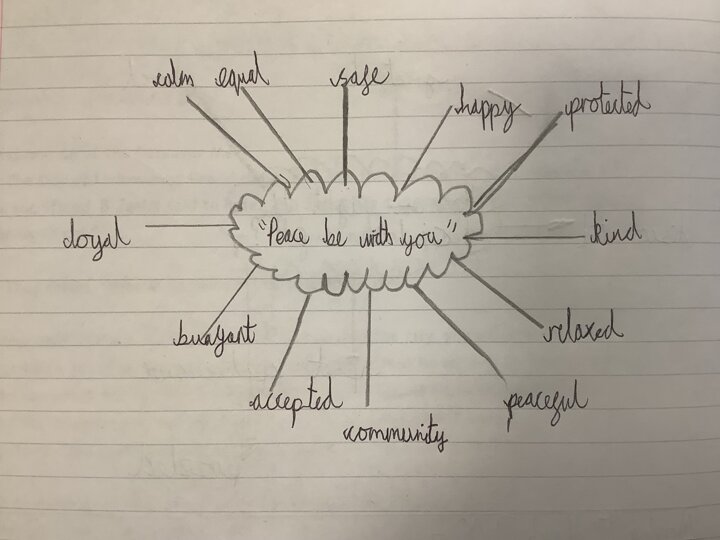 calm equal safe
happy protected
"Peace be with you"
loyal kind
buoyant relaxed
accepted peaceful
community